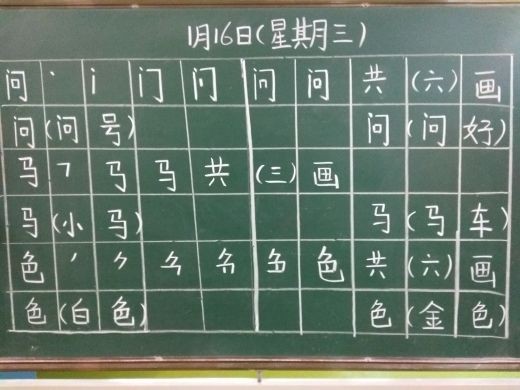 1月16日(星期三)
问 丶 门 问 问 问 共 (六) 画
问 (问号) 问 (问好)
马 ㇕ 马 马 共 (三) 画
马 (小马) 马 (马车)
色 ノ ⺈ 色 共 (六) 画
色 (白色) 色 (金色)